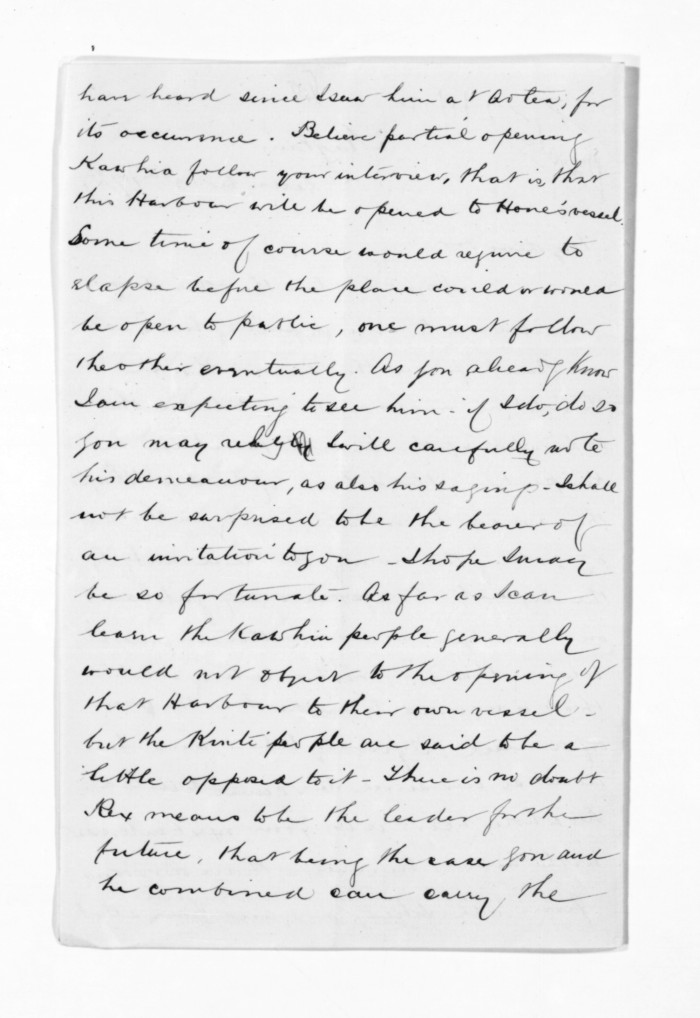 have heard since I saw him at Aotea, for
its occurrence. Believe partial opening
Kawhia follow your interview, that is, that
this Harbour will be opened to Hone's vessel.
Some time of course would require to
elapse before the place could or would
be open to public, one must follow
the other eventually. As you already know
I am expecting to see him - if I do, do so
you may rely I will carefully note
his demeanour, as also his saying - I shall
not be surprised to be the bearer of
an invitation to you - I hope I may
be so fortunate. As far as I can
learn the Kawhia people generally
would not object to the opening of
that Harbour to their own vessel -
but the people are said to be a
little opposed to it - There is no doubt
Rex means to be the leader for the
future, that being the case you and
he combined can carry the